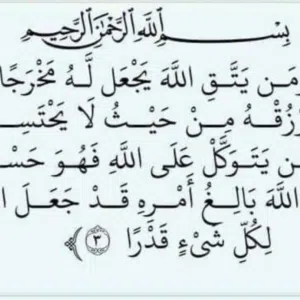 بِسْمِ ٱللَّهِ ٱلرَّحْمَٰنِ ٱلرَّحِيمِ
وَمَن يَتَّقِ اللَّهَ يَجْعَل لَّهُ مَخْرَجًا
رْزُقْهُ مِنْ حَيْثُ لَا يَحْتَسِ
ن يَتَوَكَّلْ عَلَى اللَّهِ فَهُوَ حَسْ
اللَّهَ بَالِغُ أَمْرِهِ قَدْ جَعَلَ ا
لِكُلِّ شَيْءٍ قَدْرًا ﴿٣﴾